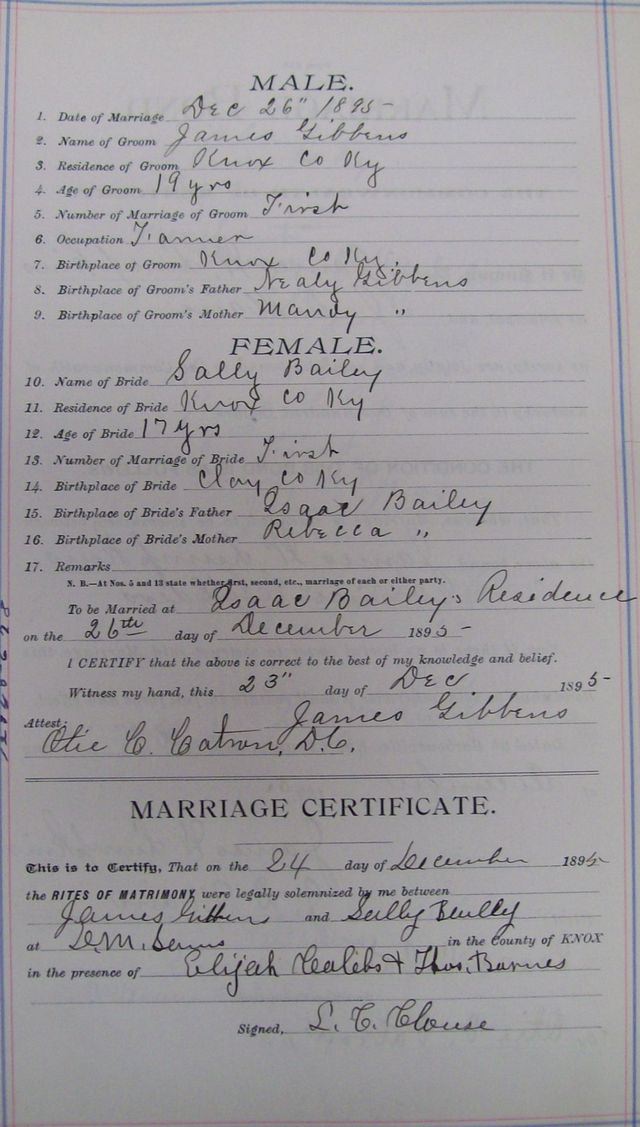 MALE.
1. Date of Marriage Dec 26" 1895-
2. Name of Groom James Gibbens
3. Residence of Groom Knox Co Ky
4. Age of Groom 19 yrs
5. Number of Marriage of Groom First
6. Occupation Farmer
7. Birthplace of Groom Knox Co Ky.
8. Birthplace of Groom's Father Nealy Gibbens
9. Birthplace of Groom's Mother Mandy "
FEMALE.
10. Name of Bride Sally Bailey
11. Residence of Bride Knox Co Ky
12. Age of Bride 17 yrs
13. Number of Marriage of Bride First
14. Birthplace of Bride Clay Co Ky
15. Birthplace of Bride's Father Isaac Bailey
16. Birthplace of Bride's Mother Rebecca "
17. Remarks
N. B.—At Nos. 5 and 13 state whether first, second, etc., marriage of each or either party.
To be Married at Isaac Bailey's Residence
on the 26th day of December 1895-
I CERTIFY that the above is correct to the best of my knowledge and belief.
Witness my hand, this 23" day of Dec 1895-
James Gibbens
Attest:
Otie C. Catron, D.C.
MARRIAGE CERTIFICATE.
This is to Certify, That on the 24 day of December 1895-
the RITES OF MATRIMONY were legally solemnized by me between
James Gibbens and Sally
at D.M. in the County of KNOX
in the presence of Elijah & Thos. Barnes
Signed, L. C. Clouse